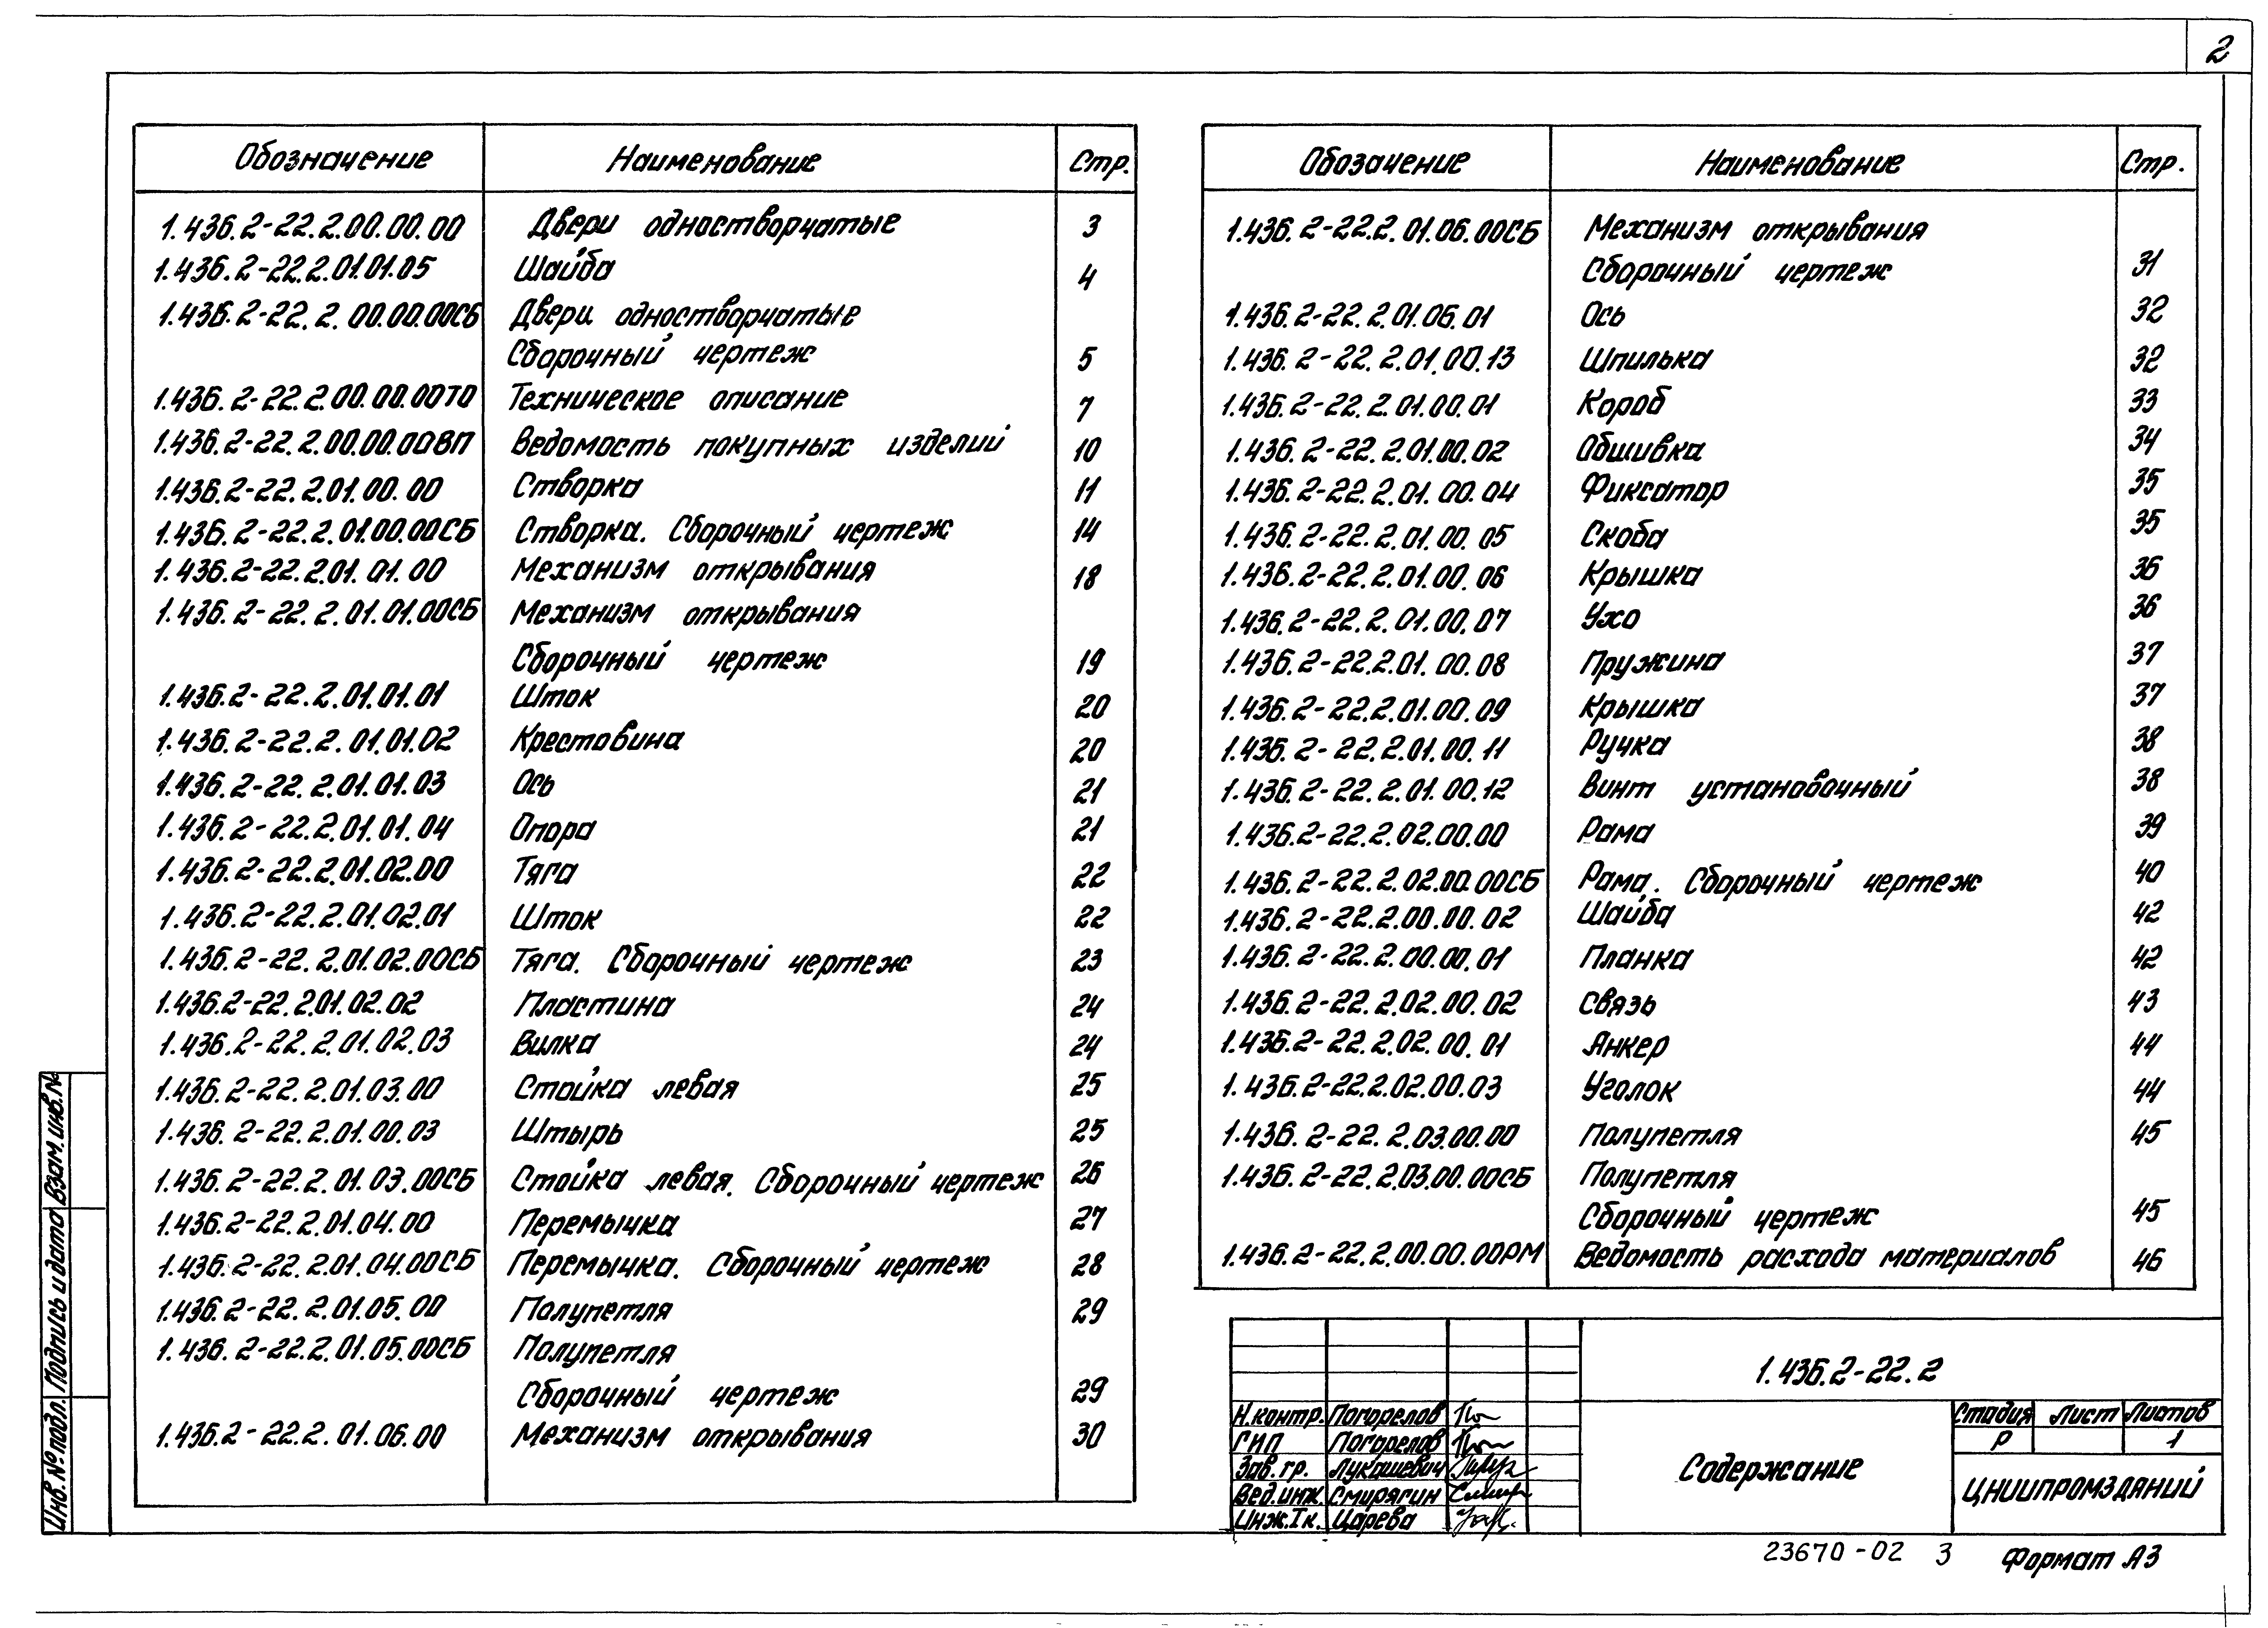 2
Обозначение Наименование Стр.
1.436.2-22.2.00.00.00 Двери одностворчатые 3
1.436.2-22.2.01.01.05 Шайба 4
1.436.2-22.2.00.00.00СБ Двери одностворчатые
Сборочный чертеж 5
1.436.2-22.2.00.00.00ТО Техническое описание 7
1.436.2-22.2.00.00.00ВП Ведомость покупных изделий 10
1.436.2-22.2.01.00.00 Створка 11
1.436.2-22.2.01.00.00СБ Створка. Сборочный чертеж 14
1.436.2-22.2.01.01.00 Механизм открывания 18
1.436.2-22.2.01.01.00СБ Механизм открывания
Сборочный чертеж 19
1.436.2-22.2.01.01.01 Шток 20
1.436.2-22.2.01.01.02 Крестовина 20
1.436.2-22.2.01.01.03 Ось 21
1.436.2-22.2.01.01.04 Опора 21
1.436.2-22.2.01.02.00 Тяга 22
1.436.2-22.2.01.02.01 Шток 22
1.436.2-22.2.01.02.00СБ Тяга. Сборочный чертеж 23
1.436.2-22.2.01.02.02 Пластина 24
1.436.2-22.2.01.02.03 Вилка 24
1.436.2-22.2.01.03.00 Стойка левая 25
1.436.2-22.2.01.00.03 Штырь 25
1.436.2-22.2.01.03.00СБ Стойка левая. Сборочный чертеж 26
1.436.2-22.2.01.04.00 Перемычка 27
1.436.2-22.2.01.04.00СБ Перемычка. Сборочный чертеж 28
1.436.2-22.2.01.05.00 Полупетля 29
1.436.2-22.2.01.05.00СБ Полупетля
Сборочный чертеж 29
1.436.2-22.2.01.06.00 Механизм открывания 30
Обозачение Наименование Стр.
1.436.2-22.2.01.06.00СБ Механизм открывания
Сборочный чертеж 31
1.436.2-22.2.01.06.01 Ось 32
1.436.2-22.2.01.00.13 Шпилька 32
1.436.2-22.2.01.00.01 Короб 33
1.436.2-22.2.01.00.02 Обшивка 34
1.436.2-22.2.01.00.04 Фиксатор 35
1.436.2-22.2.01.00.05 Скоба 35
1.436.2-22.2.01.00.06 Крышка 36
1.436.2-22.2.01.00.07 Ухо 36
1.436.2-22.2.01.00.08 Пружина 37
1.436.2-22.2.01.00.09 Крышка 37
1.436.2-22.2.01.00.11 Ручка 38
1.436.2-22.2.01.00.12 Винт установочный 38
1.436.2-22.2.02.00.00 Рама 39
1.436.2-22.2.02.00.00СБ Рама. Сборочный чертеж 40
1.436.2-22.2.00.00.02 Шайба 42
1.436.2-22.2.00.00.01 Планка 42
1.436.2-22.2.02.00.02 Связь 43
1.436.2-22.2.02.00.01 Анкер 44
1.436.2-22.2.02.00.03 Уголок 44
1.436.2-22.2.03.00.00 Полупетля 45
1.436.2-22.2.03.00.00СБ Полупетля
Сборочный чертеж 45
1.436.2-22.2.00.00.00РМ Ведомость расхода материалов 46
Взам. инв. №
Подпись и дата
Инв. № подл.
1.436.2-22.2
Н.контр. Погорелов
ГИП Погорелов
Зав. гр. Лукашевич
Вед. инж. Смирягин
Инж. I к. Царева
Содержание
Стадия Лист Листов
Р 1
ЦНИИПРОМЗДАНИЙ
23670-02 3 Формат А3